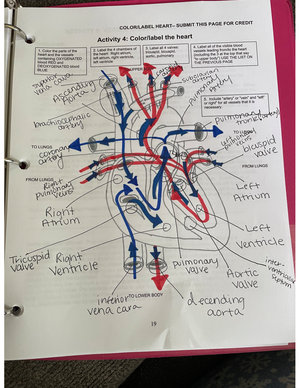 COLOR/LABEL HEART– SUBMIT THIS PAGE FOR CREDIT
Activity 4: Color/label the heart
1. Color the parts of the heart and the vessels containing OXYGENATED blood RED and DEOXYGENATED blood BLUE.
2. Label the 4 chambers of the heart: Right atrium, left atrium, right ventricle, left ventricle
3. Label all 4 valves: tricuspid, bicuspid, aortic, pulmonary
4. Label all of the visible blood vessels leading to/to/from the heart
"to upper body") USE THE LIST ON THE PREVIOUS PAGE
5. Include "artery" or "vein" and "left" or "right" for all vessels that it is necessary.
superior vena cava
Ascending Aorta
brachiocephalic artery
subclavian artery
pulmonary artery
TO LUNGS
TO LUNGS
coronary artery
bicuspid valve
FROM LUNGS
FROM LUNGS
Right pulmonary veins
Left Atrium
Right Atrium
Left Ventricle
Tricuspid Valve
Right Ventricle
pulmonary valve
Aortic Valve
interventricular septum
TO LOWER BODY
inferior vena cara
decending aorta
19